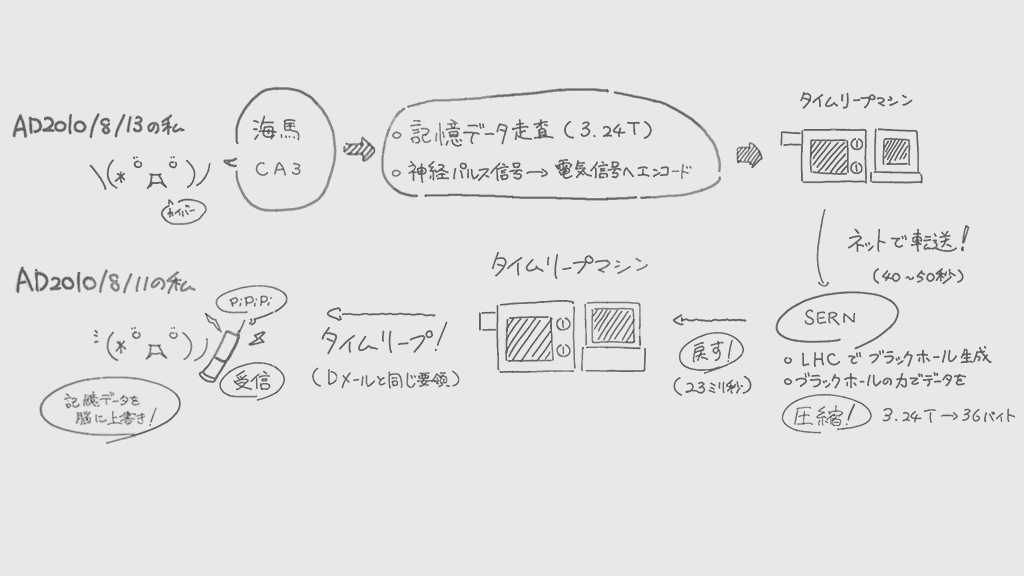 AD2010/8/13の私
海馬
CA3
○ 記憶データ走査 (3.24T)
○ 神経パルス信号→電気信号へエンコード
タイムリープマシン
ガイバー
ネットで転送!
(40～50秒)
SERN
○ LHCでブラックホール生成
○ ブラックホールの力でデータを
圧縮! 3.24T→36バイト
戻す!
(23ミリ秒)
タイムリープマシン
タイムリープ!
(Dメールと同じ要領)
AD2010/8/11の私
PiPiPi
受信
記憶データを
脳に上書き!